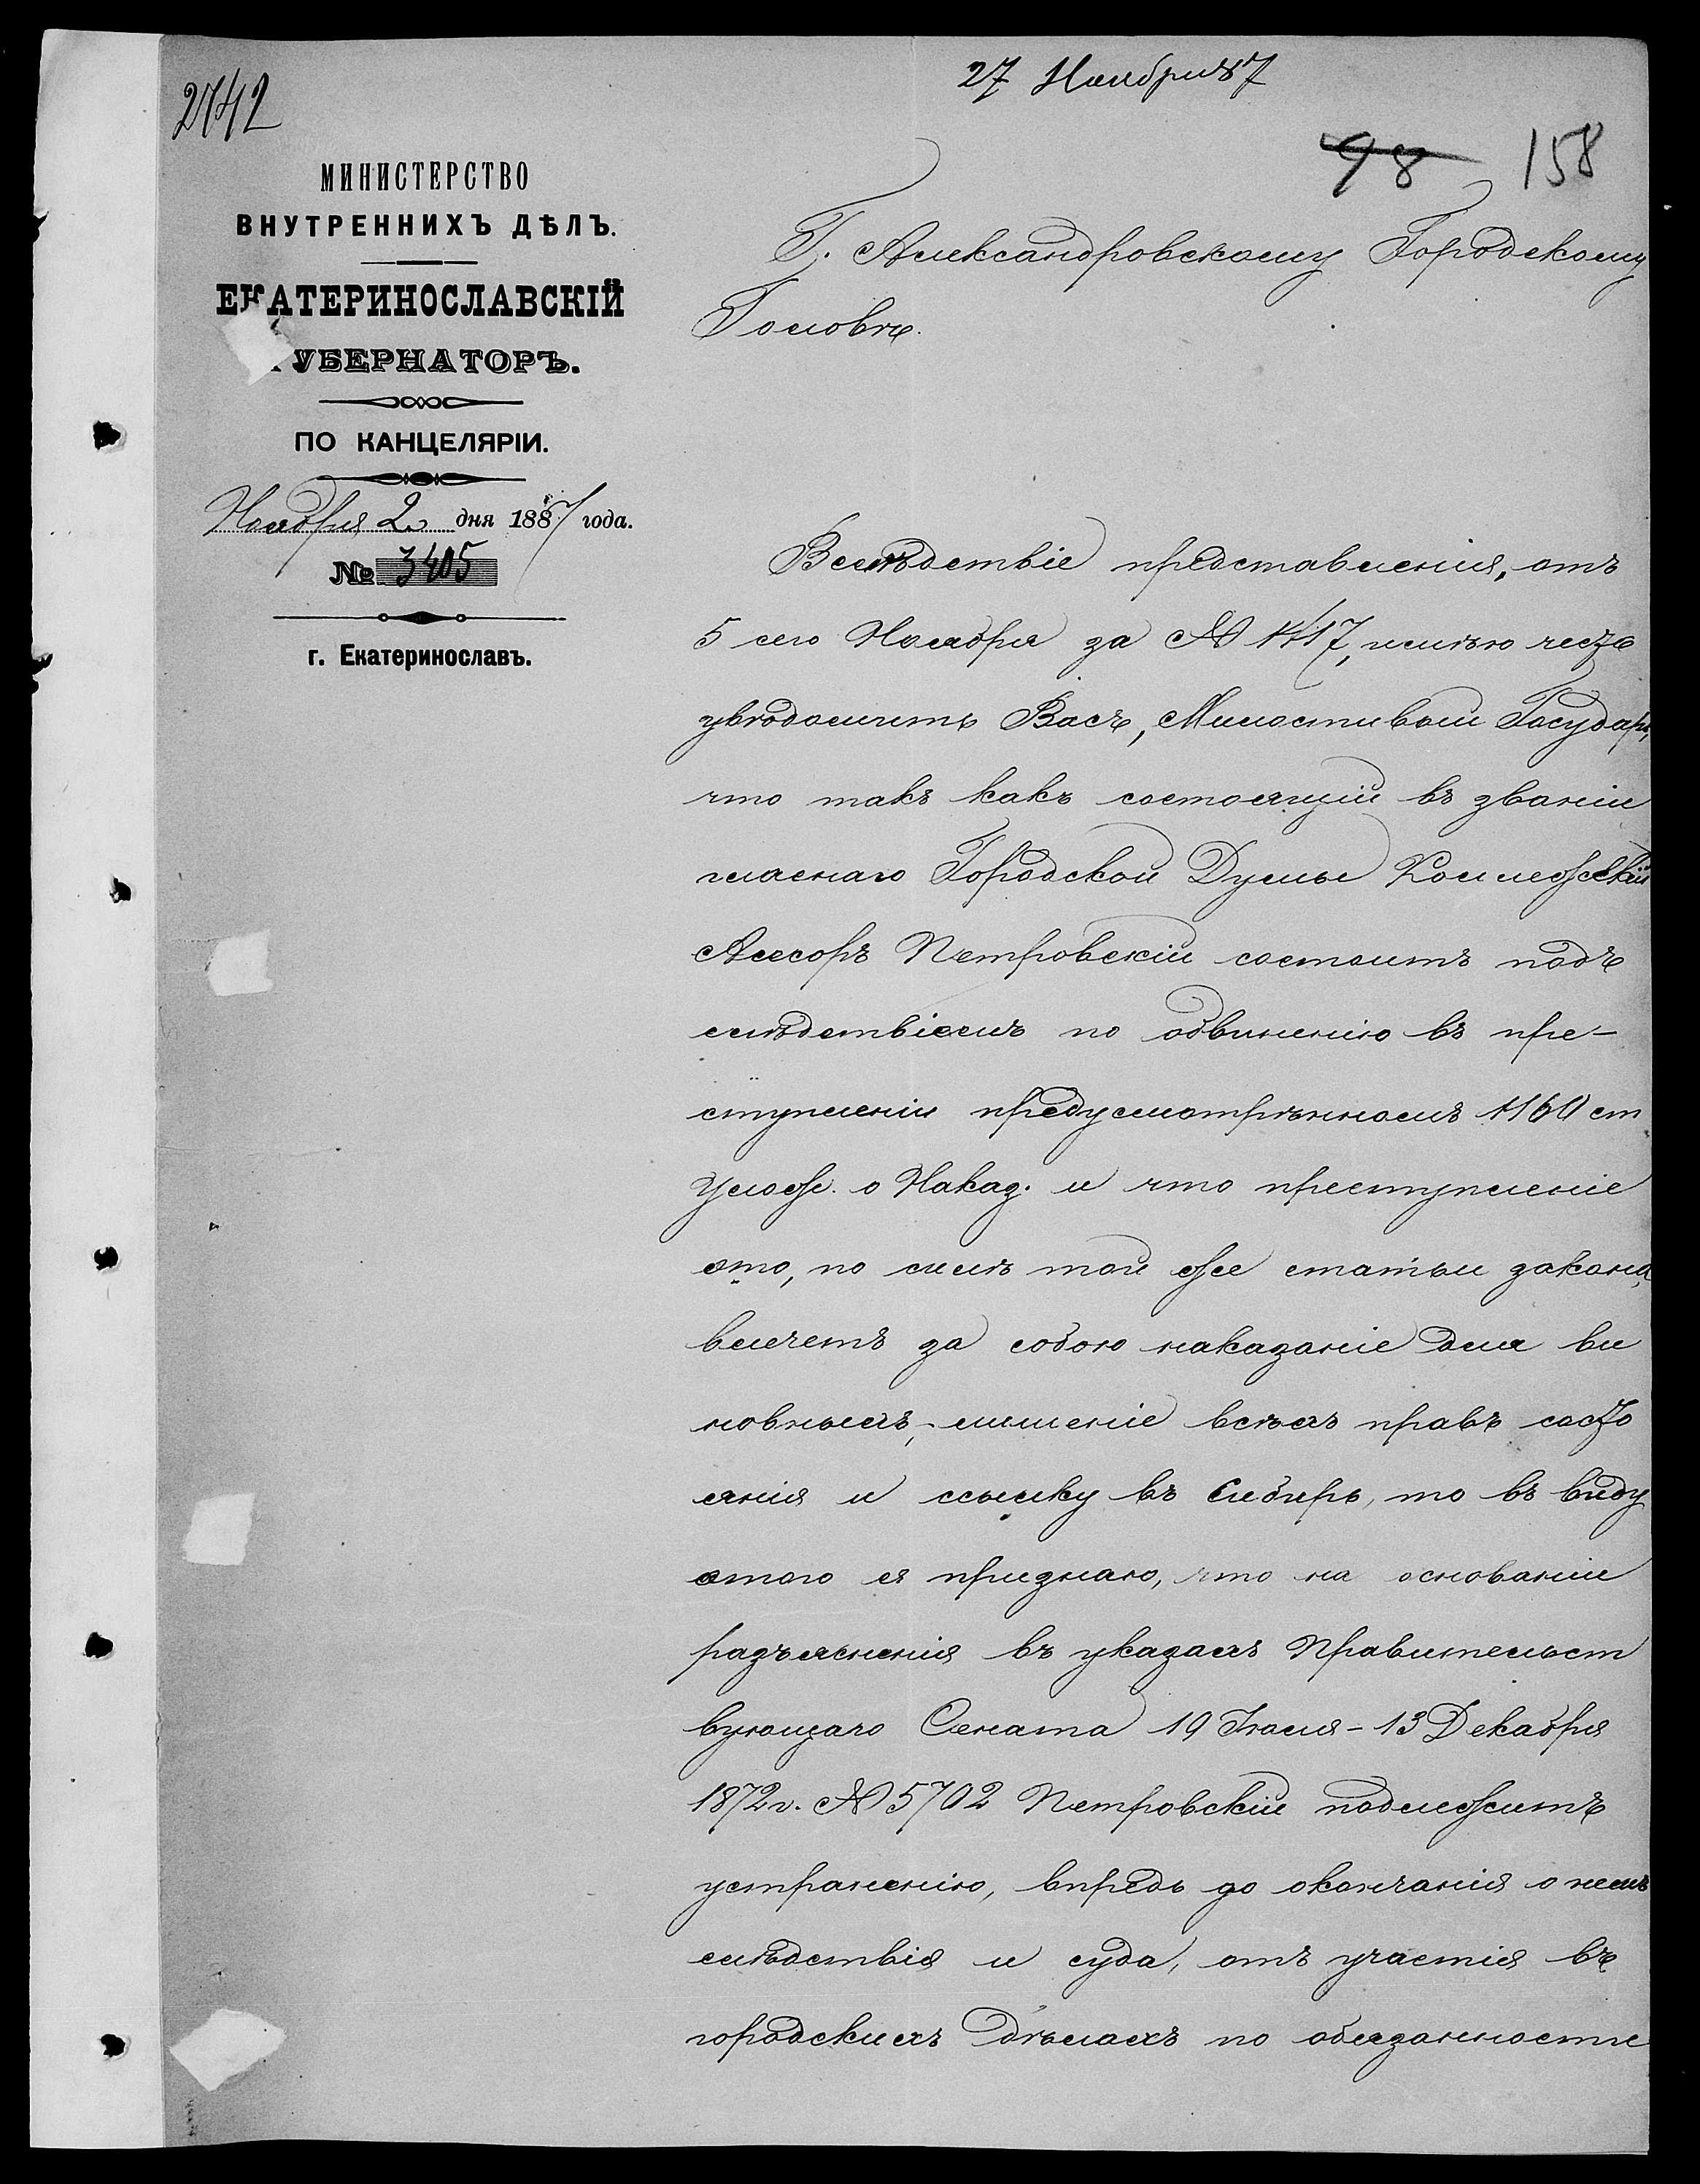 27 Ноября 87
2742
98 158
МИНИСТЕРСТВО
ВНУТРЕННИХЪ ДѢЛЪ.
ЕКАТЕРИНОСЛАВСКІЙ
ГУБЕРНАТОРЪ.
ПО КАНЦЕЛЯРІИ.
Ноября 2 дня 1887 года.
№ 3405
г. Екатеринославъ.
Г. Александровскому Городскому
Головѣ.
Вслѣдствіе представленія, отъ
5 сего Ноября за № 1417, имѣю честь
увѣдомить Васъ, Милостивый Государь,
что такъ какъ состоящій въ званіи
гласнаго Городской Думы Коллежскій
Асесоръ Петровскій состоитъ подъ
слѣдствіемъ по обвиненію въ пре-
ступленіи предусмотрѣнномъ 1160 ст
Улож. о Наказ. и что преступленіе
это, по силѣ той же статьи закона,
влечетъ за собою наказаніе для ви
новныхъ, лишеніе всѣхъ правъ состо
янія и ссылку въ Сибирь, то въ виду
этого я признаю, что на основаніи
разъясненія въ указахъ Правительст
вующаго Сената 19 Іюля - 13 Декабря
1872 г. № 5702 Петровскій подлежитъ
устраненію, впредь до окончанія о немъ
слѣдствія и суда, отъ участія въ
городскихъ дѣлахъ по обязанности